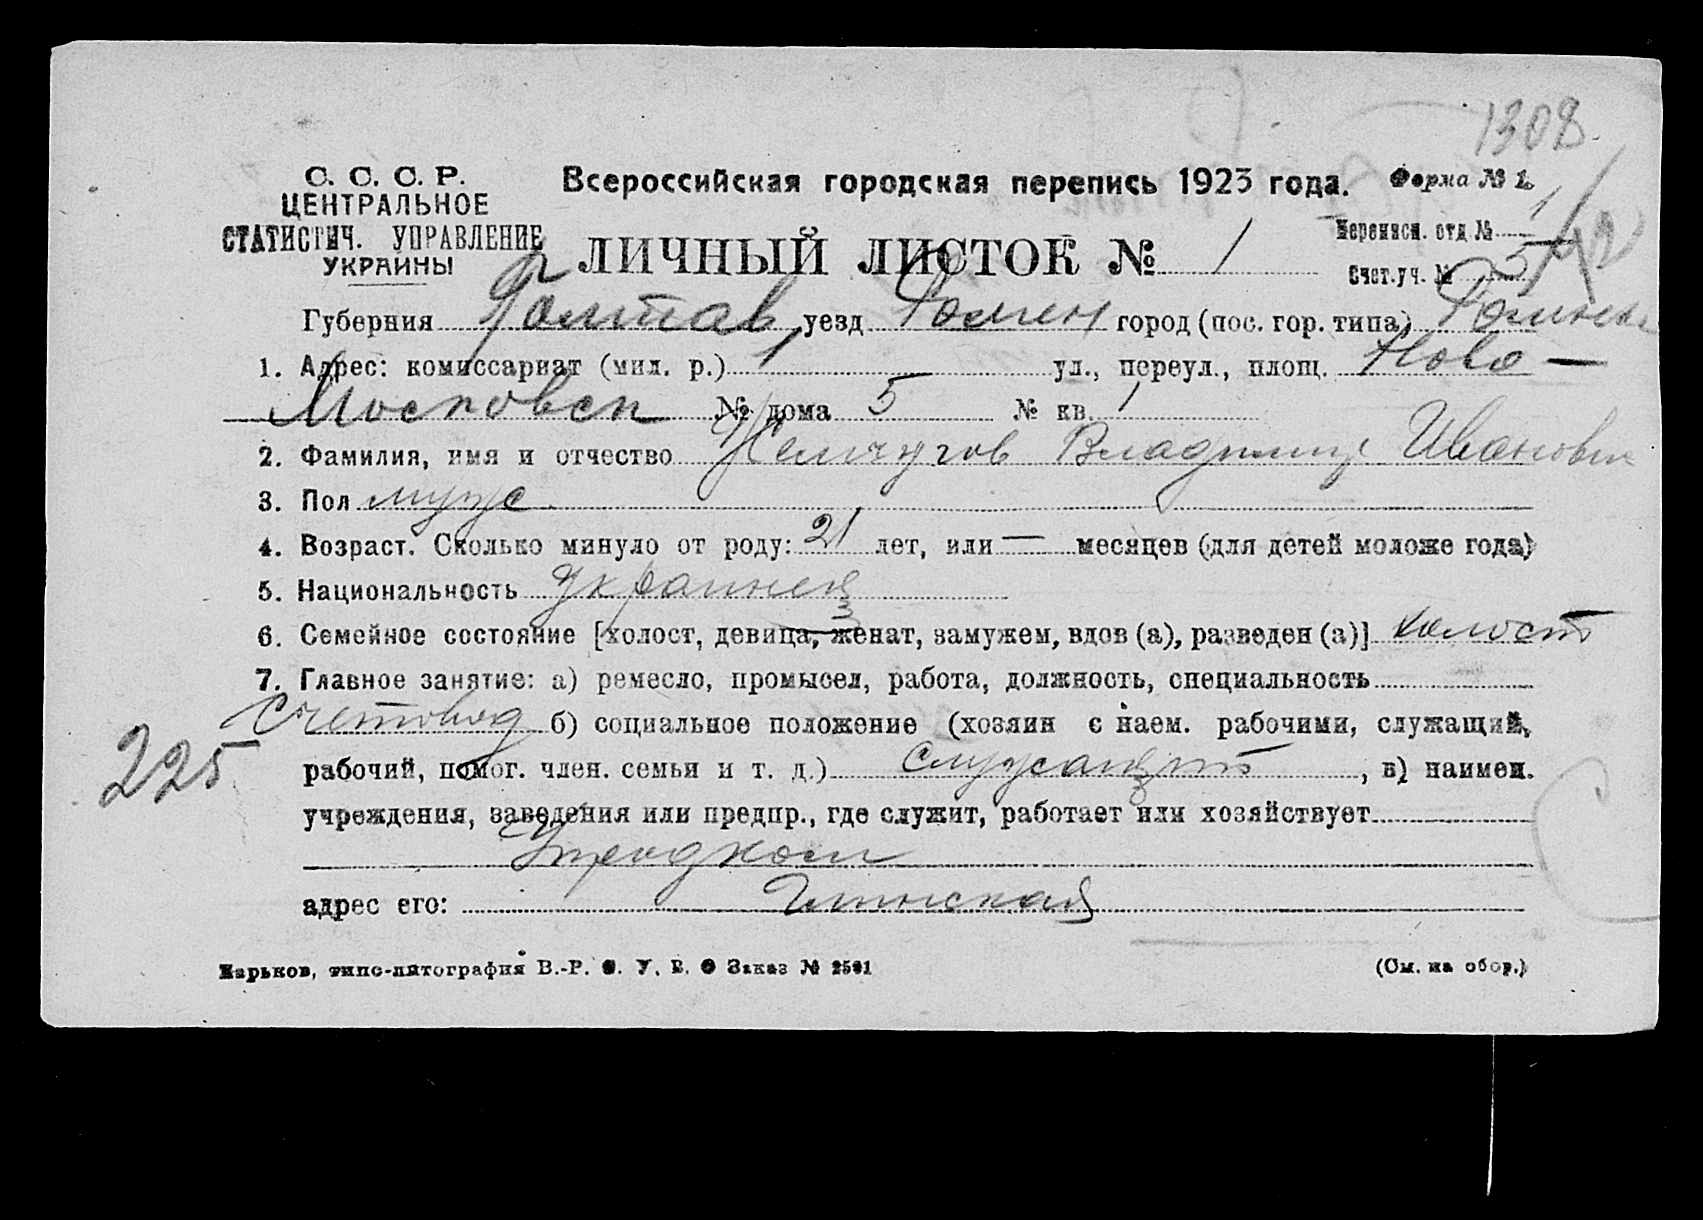 1308
С. С. С. Р.
ЦЕНТРАЛЬНОЕ
СТАТИСТИЧ. УПРАВЛЕНИЕ
УКРАИНЫ
Всероссийская городская перепись 1923 года.
Форма № 1.
ЛИЧНЫЙ ЛИСТОК № 1
Переписн. отд. № 1
Счет. уч. № 5
Губерния Полтав уезд Ромен город (пос. гор. типа)
1. Адрес: комиссариат (мил. р.) 1 ул., переул., площ. Ново-
Московск № дома 5 № кв. 1
2. Фамилия, имя и отчество Жемчугов Владимир Иванович
3. Пол мужс
4. Возраст. Сколько минуло от роду: 21 лет, или — месяцев (для детей моложе года)
5. Национальность Украинец
6. Семейное состояние [холост, девица, женат, замужем, вдов (а), разведен (а)] холост
7. Главное занятие: а) ремесло, промысел, работа, должность, специальность
Счетовод б) социальное положение (хозяин с наем. рабочими, служащий,
225
рабочий, помог. член. семьи и т. д.) служащий, в) наимен.
учреждения, заведения или предпр., где служит, работает или хозяйствует
адрес его: Глинская
Харьков, типо-литография В.-Р. Ф. У. В. О Заказ № 2501
(См. на обор.)